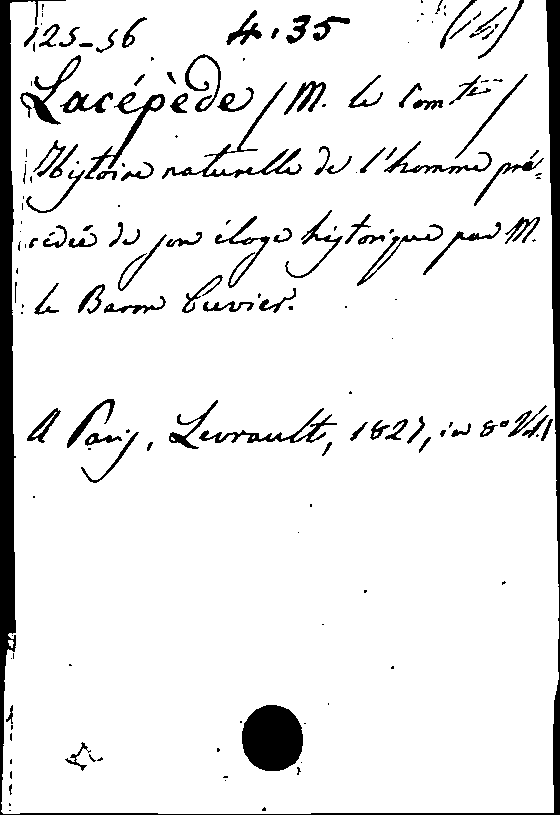 125-56 4.35 (14)
Lacépède / M. le Comte /
Histoire naturelle de l'homme pré-
cédée de son éloge historique par M.
le Baron Cuvier.
A Paris, Levrault, 1827, in 8° Vol.1